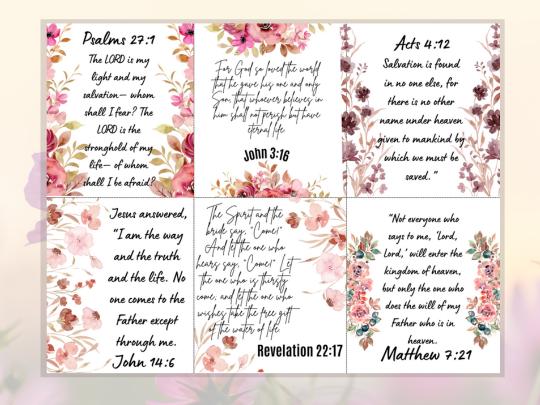 Psalms 27:1
The LORD is my
light and my
salvation— whom
shall I fear? The
LORD is the
stronghold of my
life— of whom
shall I be afraid?
For God so loved the world
that he gave his one and only
Son, that whoever believes in
him shall not perish but have
eternal life
John 3:16
Acts 4:12
Salvation is found
in no one else, for
there is no other
name under heaven
given to mankind by
which we must be
saved."
Jesus answered,
"I am the way
and the truth
and the life. No
one comes to the
Father except
through me.
John 14:6
The Spirit and the
bride say, "Come!"
And let the one who
hears say, "Come!" Let
the one who is thirsty
come; and let the one who
wishes take the free gift
of the water of life
Revelation 22:17
"Not everyone who
says to me, 'Lord,
Lord,' will enter the
kingdom of heaven,
but only the one who
does the will of my
Father who is in
heaven.
Matthew 7:21